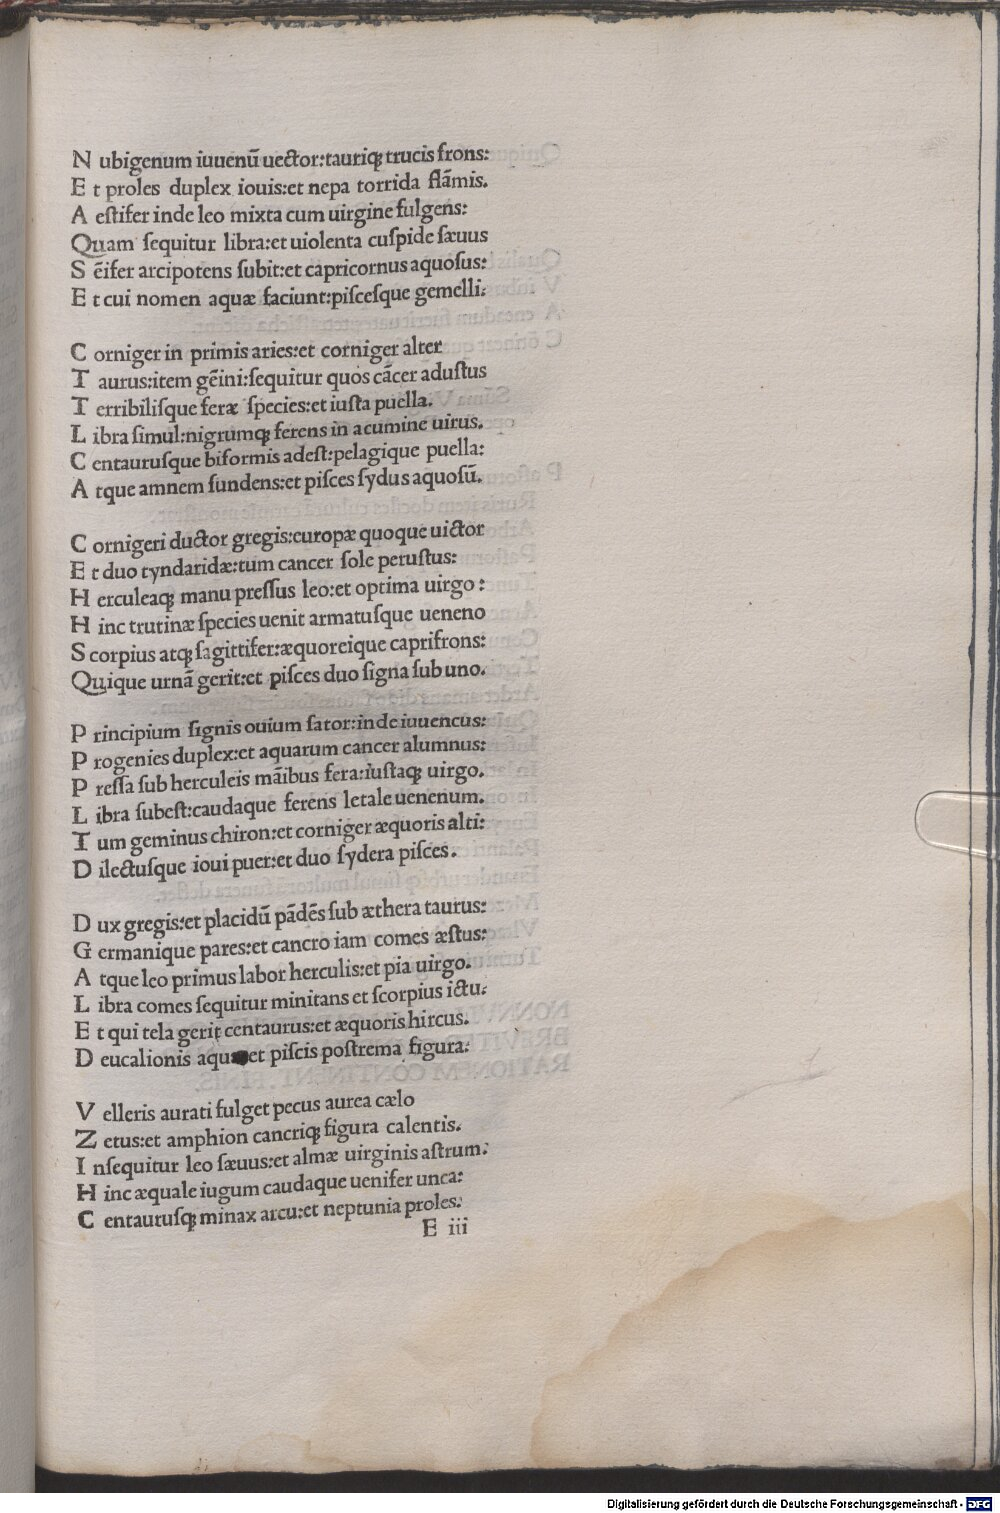 N ubigenum iuuenū uector:tauriqꝫ trucis frons:
E t proles duplex iouis:et nepa torrida flāmis.
A estifer inde leo mixta cum uirgine fulgens:
Quam sequitur libra:et uiolenta cuspide sæuus
S ēifer arcipotens subit:et capricornus aquosus:
E t cui nomen aquæ faciunt:piscesque gemelli.

C orniger in primis aries:et corniger alter
T aurus:item gēini:sequitur quos cācer adustus
T erribilisque feræ species:et iusta puella.
L ibra simul:nigrumqꝫ ferens in acumine uirus.
C entaurusque biformis adest:pelagique puella:
A tque amnem fundens:et pisces sydus aquosū.

C ornigeri ductor gregis:europæ quoque uictor
E t duo tyndaridæ:tum cancer sole perustus:
H erculeaqꝫ manu pressus leo:et optima uirgo:
H inc trutinæ species uenit armatusque ueneno
S corpius atqꝫ sagittifer:æquoreique caprifrons:
Quique urnā gerit:et pisces duo signa sub uno.

P rincipium signis ouium sator:inde iuuencus:
P rogenies duplex:et aquarum cancer alumnus:
P ressa sub herculeis māibus fera:iustaqꝫ uirgo.
L ibra subest:caudaque ferens letale uenenum.
T um geminus chiron:et corniger æquoris alti:
D ilectusque ioui puer:et duo sydera pisces.

D ux gregis:et placidū pādēs sub æthera taurus:
G ermanique pares:et cancro iam comes æstus:
A tque leo primus labor herculis:et pia uirgo.
L ibra comes sequitur minitans et scorpius ictu:
E t qui tela gerit centaurus:et æquoris hircus.
D eucalionis aquæ et piscis postrema figura:

V elleris aurati fulget pecus aurea cælo
Z etus:et amphion cancriqꝫ figura calentis.
I nsequitur leo sæuus:et almæ uirginis astrum:
H inc æquale iugum caudaque uenifer unca:
C entaurusqꝫ minax arcu:et neptunia proles:
E iii
Digitalisierung gefördert durch die Deutsche Forschungsgemeinschaft - DFG